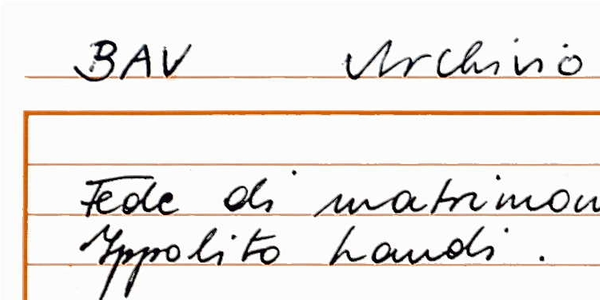 BAV Archivio
Fede di matrimon
Yppolito Landi.